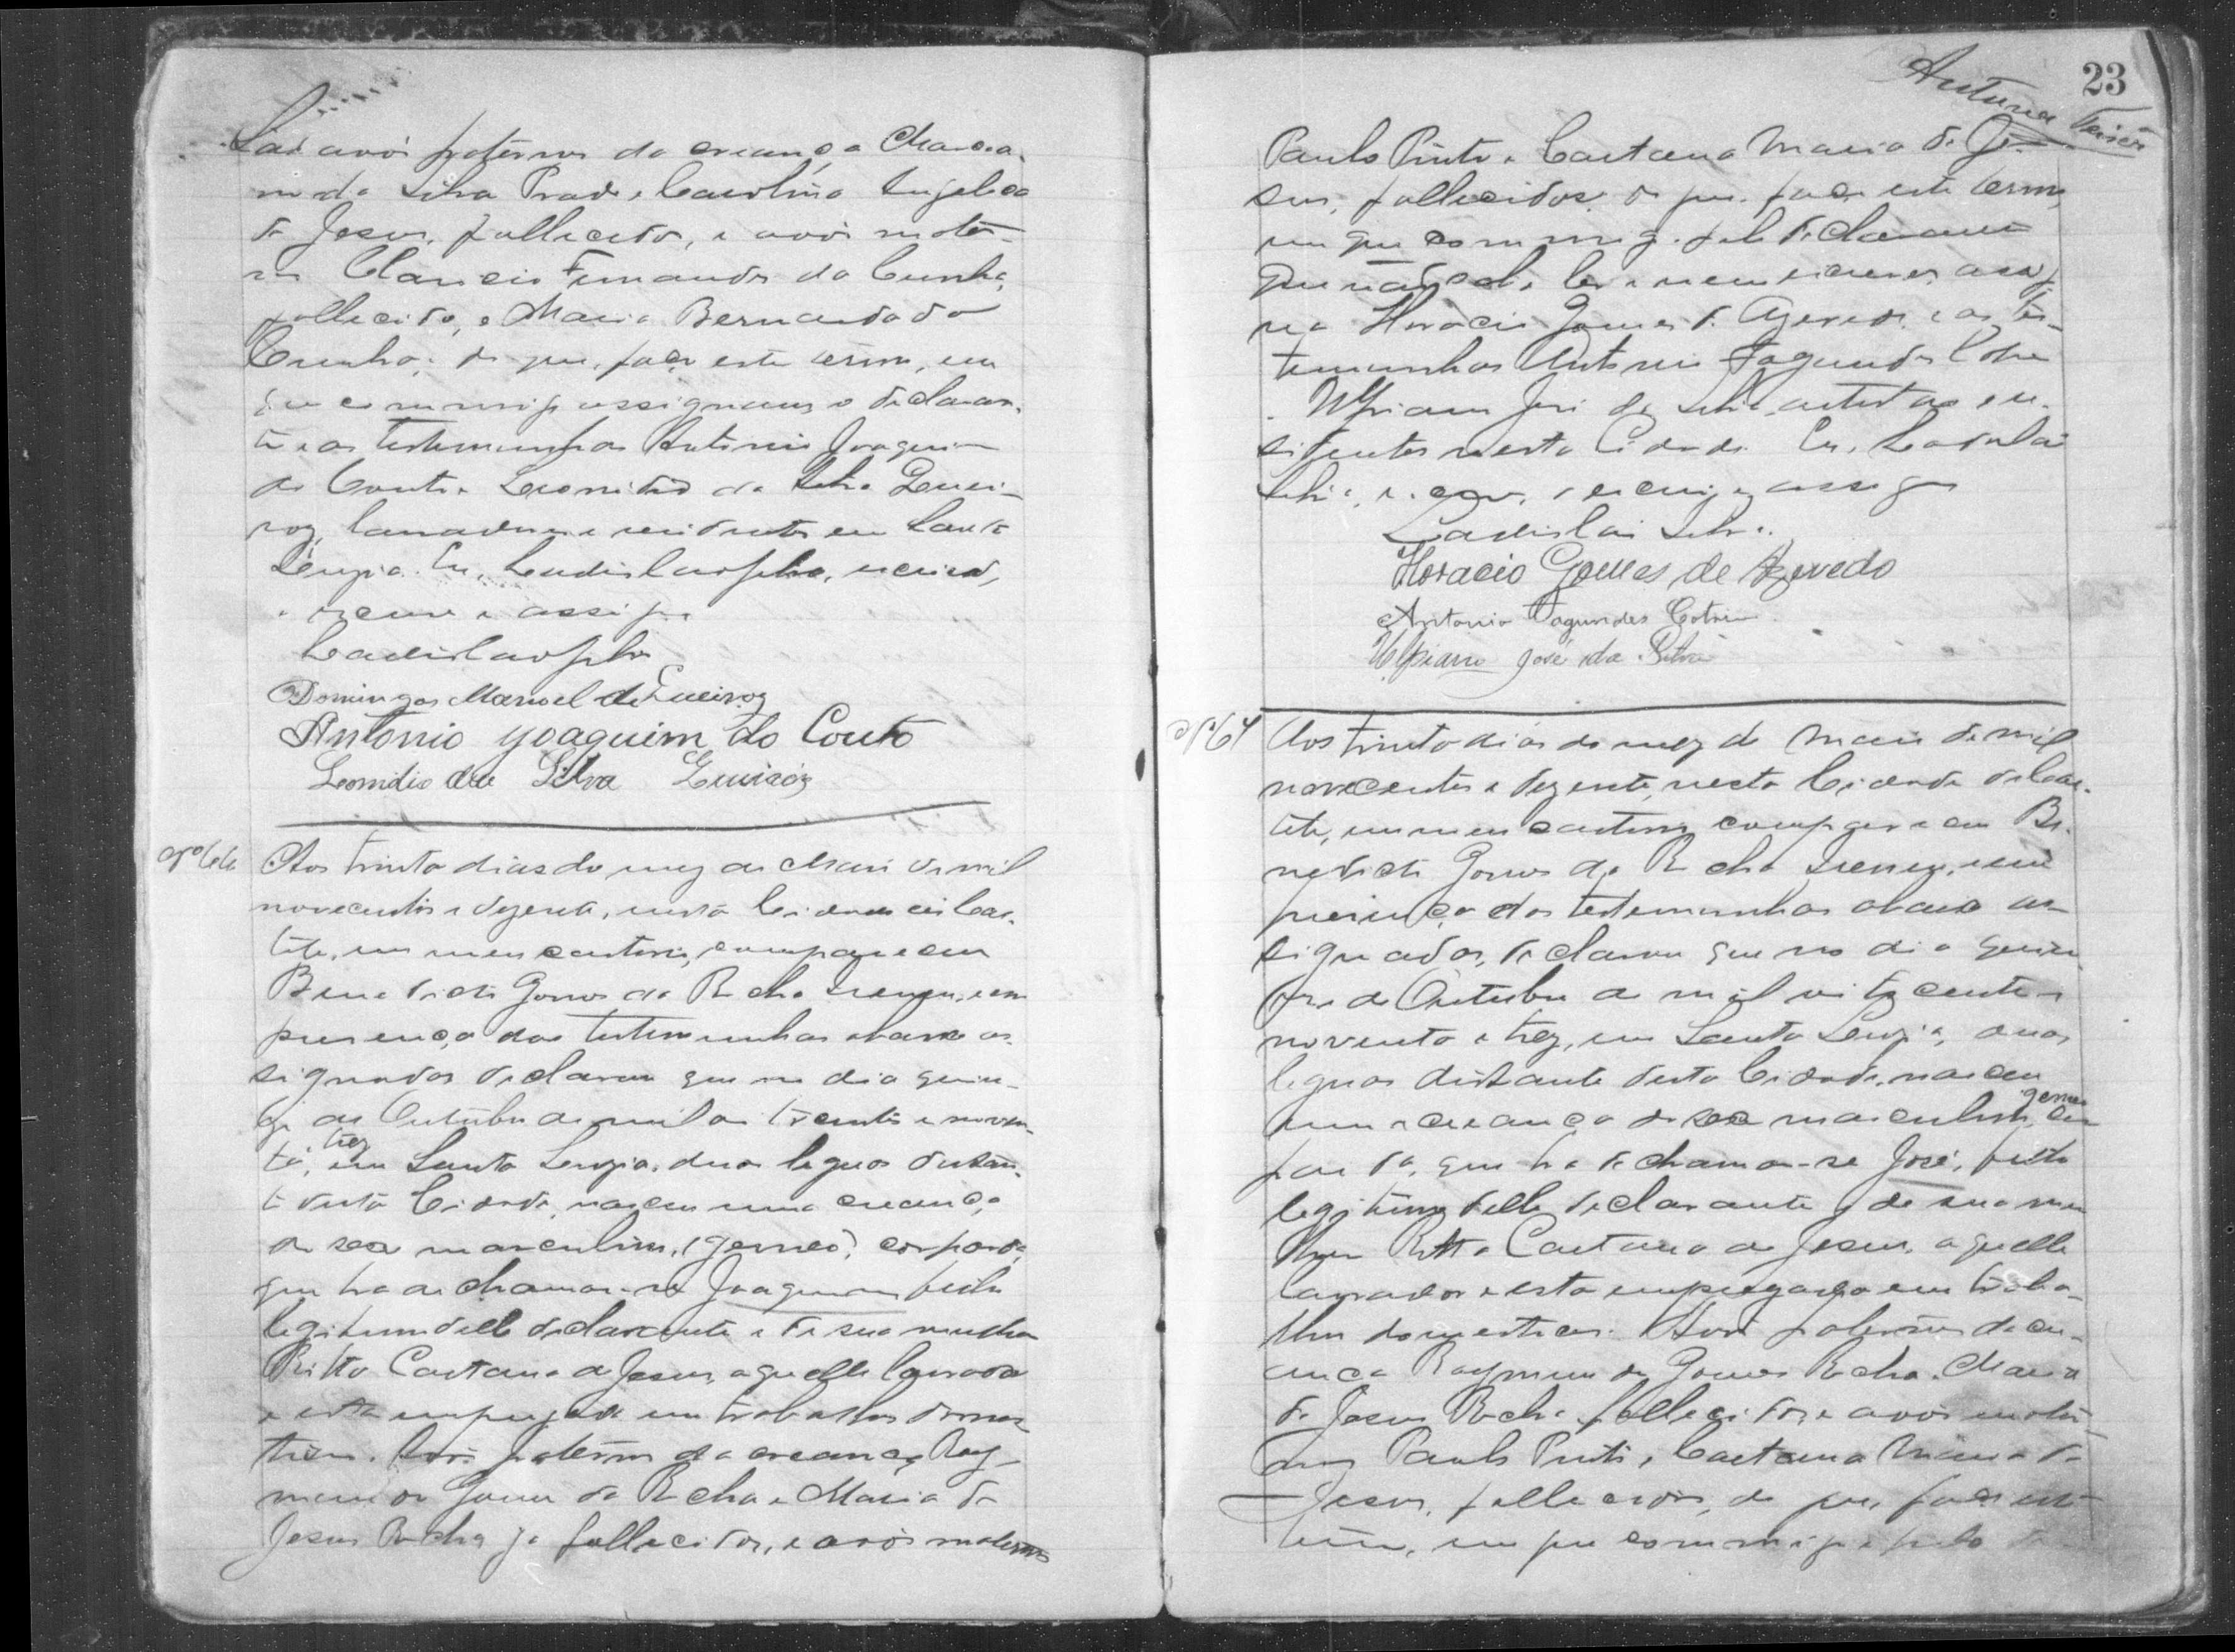 São avós paternos da creança Marcia-
no da Silva Prado e Carolina Angelica
de Jesus, fallecida, e avós mater-
nos Clancio Fernandes da Cunha,
fallecido, e Maria Bernarda da
Cunha; do que, faço este termo, em
que commigo assignam o declaran-
te e as testemunhas Antonio Joaquim
do Couto e Leonidio da Silva Quei-
roz, lavradores e residentes em Santa
Luzia. Eu, Ladislao Silva, escrivão,
o escrevi e assigno
Ladislao Silva
Domingos Manoel de Queiroz
Antonio Joaquim do Couto
Leonidio da Silva Queiróz
Nº 66 Aos trinta dias do mez de Maio de mil
novecentos e dezesete, nesta Cidade de Cae-
tité, em meu cartorio, compareceu
Benedicto Gomes da Rocha e em
presença das testemunhas abaixo as-
signadas declarou que no dia quin-
ze de Outubro de mil oitocentos e noven-
ta e trez, em Santa Luzia, duas leguas distan-
te desta Cidade, nasceu uma creança
de sexo masculino, (gemeo), cor parda,
que ha de chamar-se Joaquim, filho
legitimo delle declarante e de sua mulher
Ritta Caetana de Jesus, aquelle lavrador
e esta empregada em trabalhos domes-
ticos. Avós paternos da creança Ray-
mundo Gomes da Rocha e Maria de
Jesus Rocha já fallecidos, e avós maternos
23
Paulo Pinto e Caetana Maria de Je-
sus, fallecidos; do que, faço este termo,
em que commigo, pelo declarante
que não sabe ler e nem escrever, assig-
na Horacio Gomes de Azevedo e as tes-
temunhas Antonio Fagundes Cotrim
e Ulpiano José da Silva, artistas e re-
sidentes nesta Cidade. Eu, Ladislau
Silva, escrivão, o escrevi e assigno
Ladislau Silva.
Horacio Gomes de Azevedo
Antonio Fagundes Cotrim
Ulpiano José da Silva
Nº 67 Aos trinta dias do mez de Maio de mil
novecentos e dezesete, nesta Cidade de Cae-
tité, em meu cartorio compareceu Be-
nedicto Gomes da Rocha e em
presença das testemunhas abaixo as-
signadas, declarou que no dia quin-
ze de Outubro de mil oitocentos e
noventa e trez, em Santa Luzia, duas
leguas distante desta Cidade, nasceu
uma creança de sexo masculino, gemeo, cor
parda, que ha de chamar-se José, filho
legitimo delle declarante e de sua mu-
lher Ritta Caetana de Jesus, aquelle
lavrador e esta empregada em traba-
lhos domesticos. Avós paternos da cre-
ança Raymundo Gomes Rocha e Maria
de Jesus Rocha, fallecidos, e avós mater-
nos Paulo Pinto e Caetana Maria de
Jesus, fallecidos, do que, faço este
termo, em que commigo e pelo de-